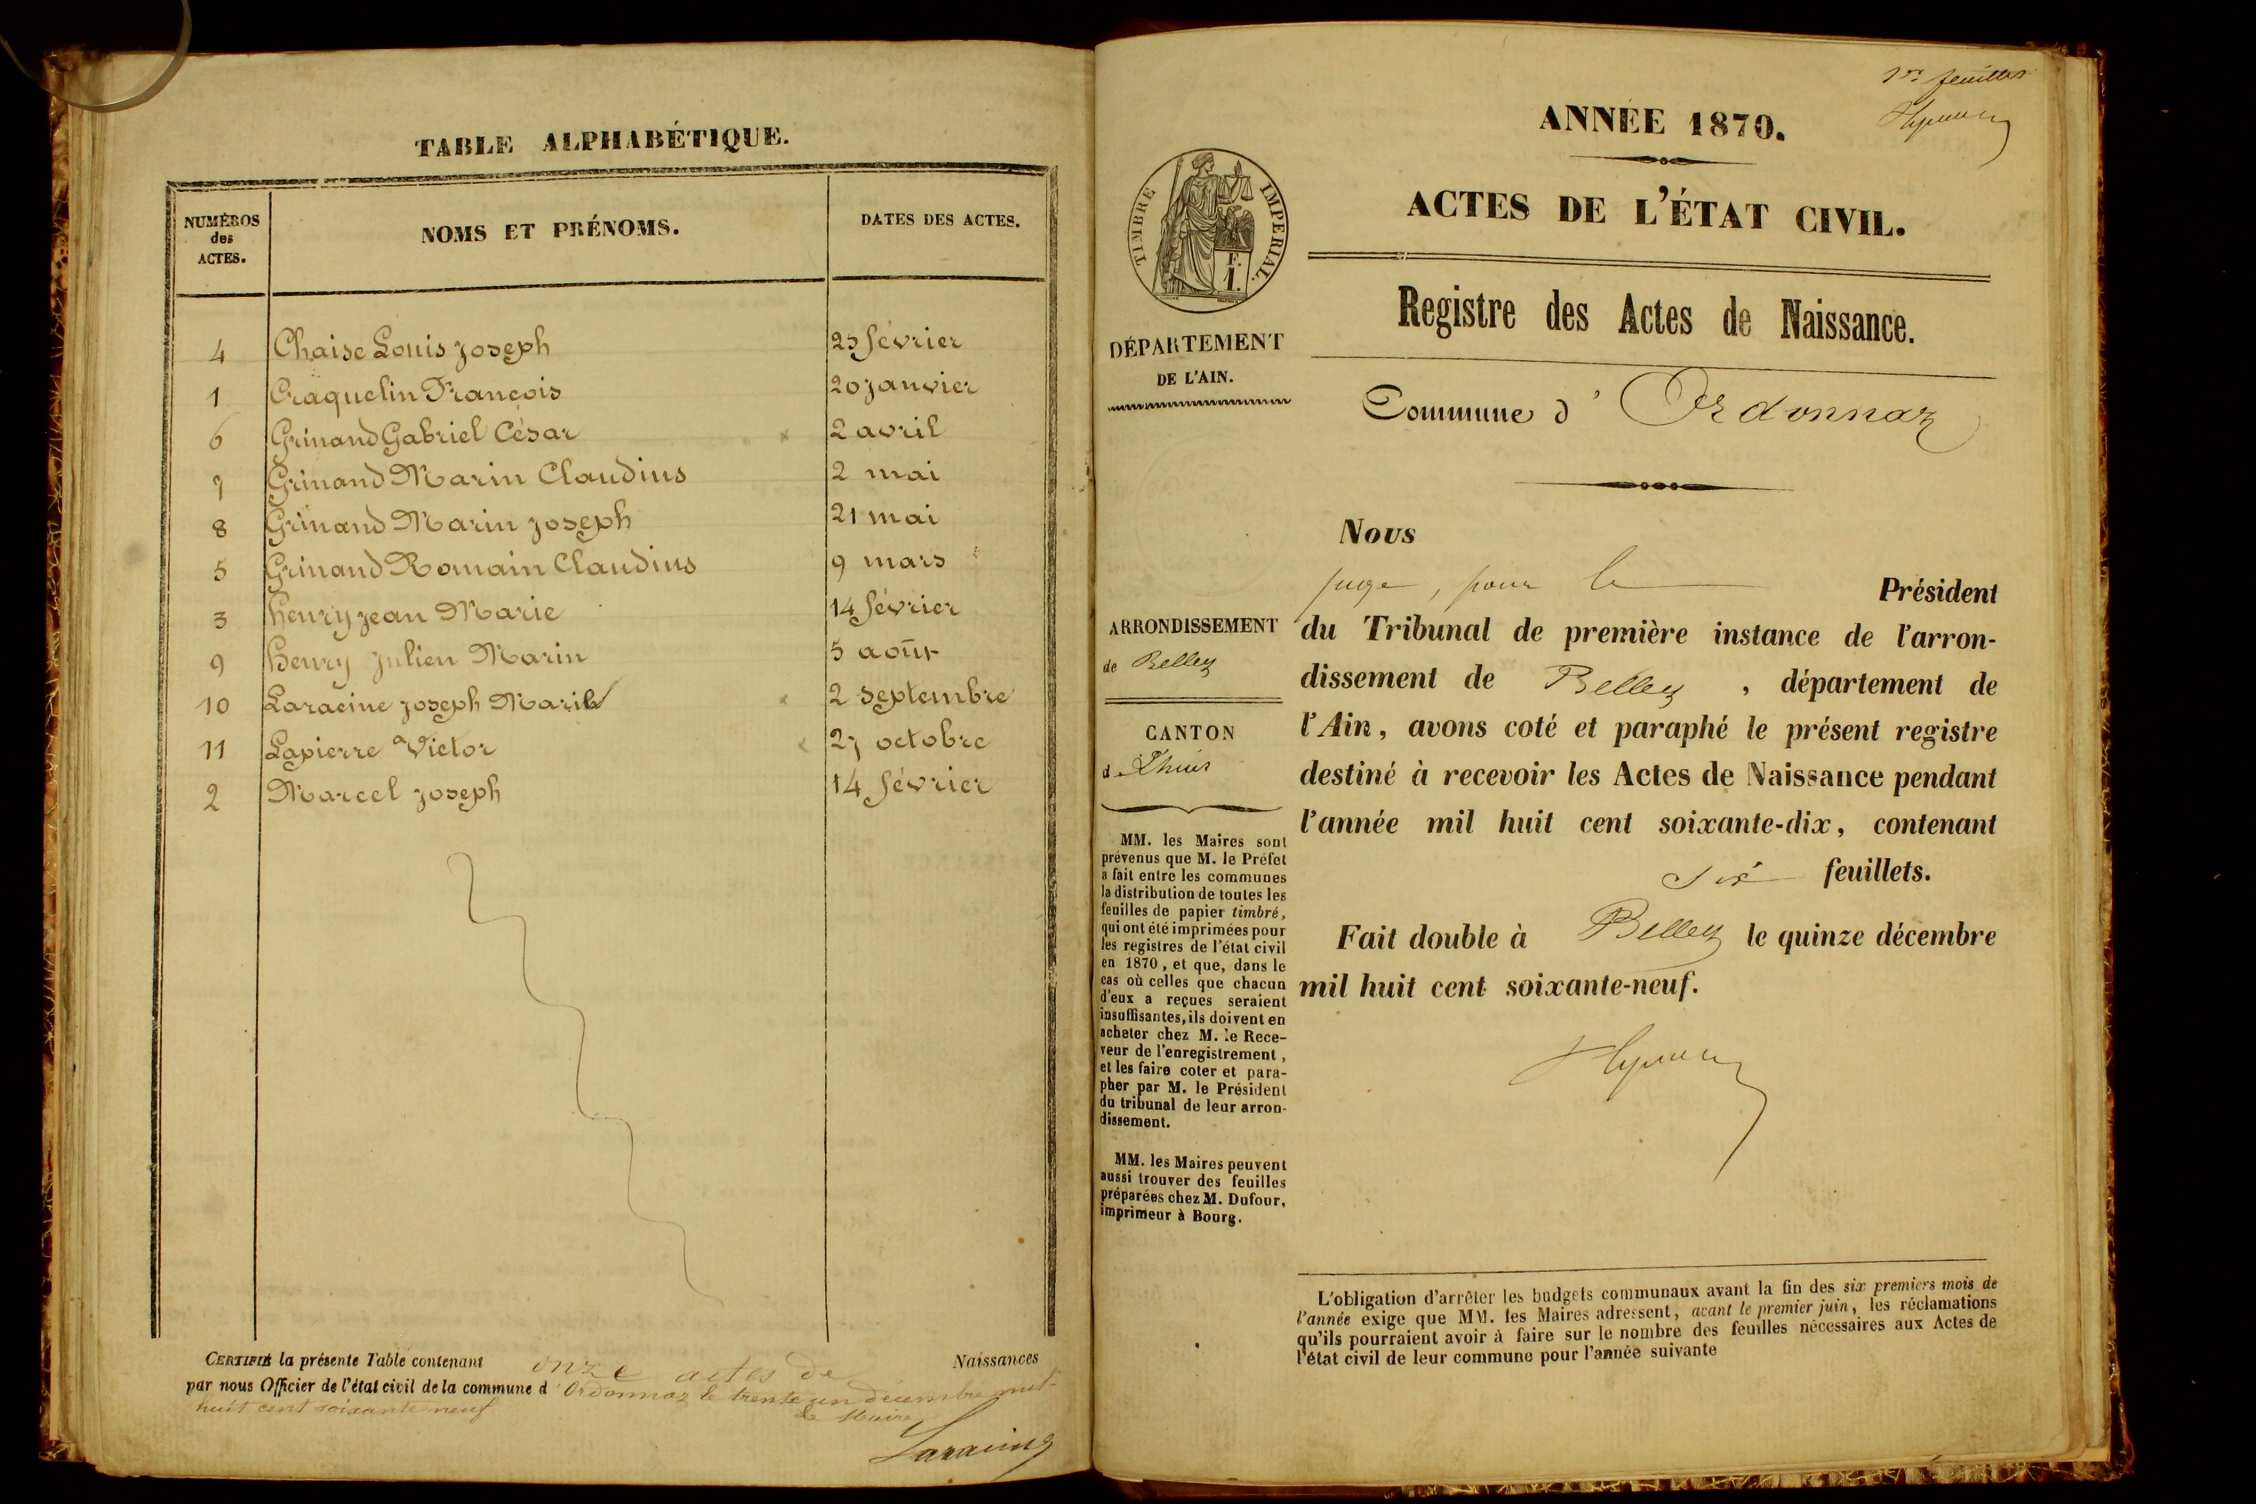 TABLE ALPHABÉTIQUE.
NUMÉROS
des
ACTES.
NOMS ET PRÉNOMS.
DATES DES ACTES.
4 Chaise Louis Joseph 25 février
1 Craquelin François 20 janvier
6 Grinand Gabriel César 2 avril
7 Grinand Marin Claudius 2 mai
8 Grinand Marin Joseph 21 mai
5 Grinand Romain Claudius 9 mars
3 henry jean Marie 14 février
9 henry Julien Marin 5 août
10 Laracine Joseph Marie 2 septembre
11 Lapierre Victor 27 octobre
2 Marcel Joseph 14 février
CERTIFIÉ la présente Table contenant onze actes de Naissances
par nous Officier de l'état civil de la commune d'Ordonnaz le trente un décembre mil
huit cent soixante neuf
Le Maire
Laracine
1er feuillet
ANNÉE 1870.
ACTES DE L'ÉTAT CIVIL.
TIMBRE IMPERIAL.
Registre des Actes de Naissance.
DÉPARTEMENT
DE L'AIN.
Commune d'Ordonnaz
Nous
juge, pour le Président
du Tribunal de première instance de l'arron-
dissement de Belley, département de
l'Ain, avons coté et paraphé le présent registre
destiné à recevoir les Actes de Naissance pendant
l'année mil huit cent soixante-dix, contenant
six feuillets.
Fait double à Belley le quinze décembre
mil huit cent soixante-neuf.
ARRONDISSEMENT
de Belley
CANTON
d
MM. les Maires sont
prévenus que M. le Préfet
a fait entre les communes
la distribution de toutes les
feuilles de papier timbré,
qui ont été imprimées pour
les registres de l'état civil
en 1870, et que, dans le
cas où celles que chacun
d'eux a reçues seraient
insuffisantes, ils doivent en
acheter chez M. le Rece-
veur de l'enregistrement,
et les faire coter et para-
pher par M. le Président
du tribunal de leur arron-
dissement.
MM. les Maires peuvent
aussi trouver des feuilles
préparées chez M. Dufour,
imprimeur à Bourg.
L'obligation d'arrêter les budgets communaux avant la fin des six premiers mois de
l'année exige que MM. les Maires adressent, avant le premier juin, les réclamations
qu'ils pourraient avoir à faire sur le nombre des feuilles nécessaires aux Actes de
l'état civil de leur commune pour l'année suivante